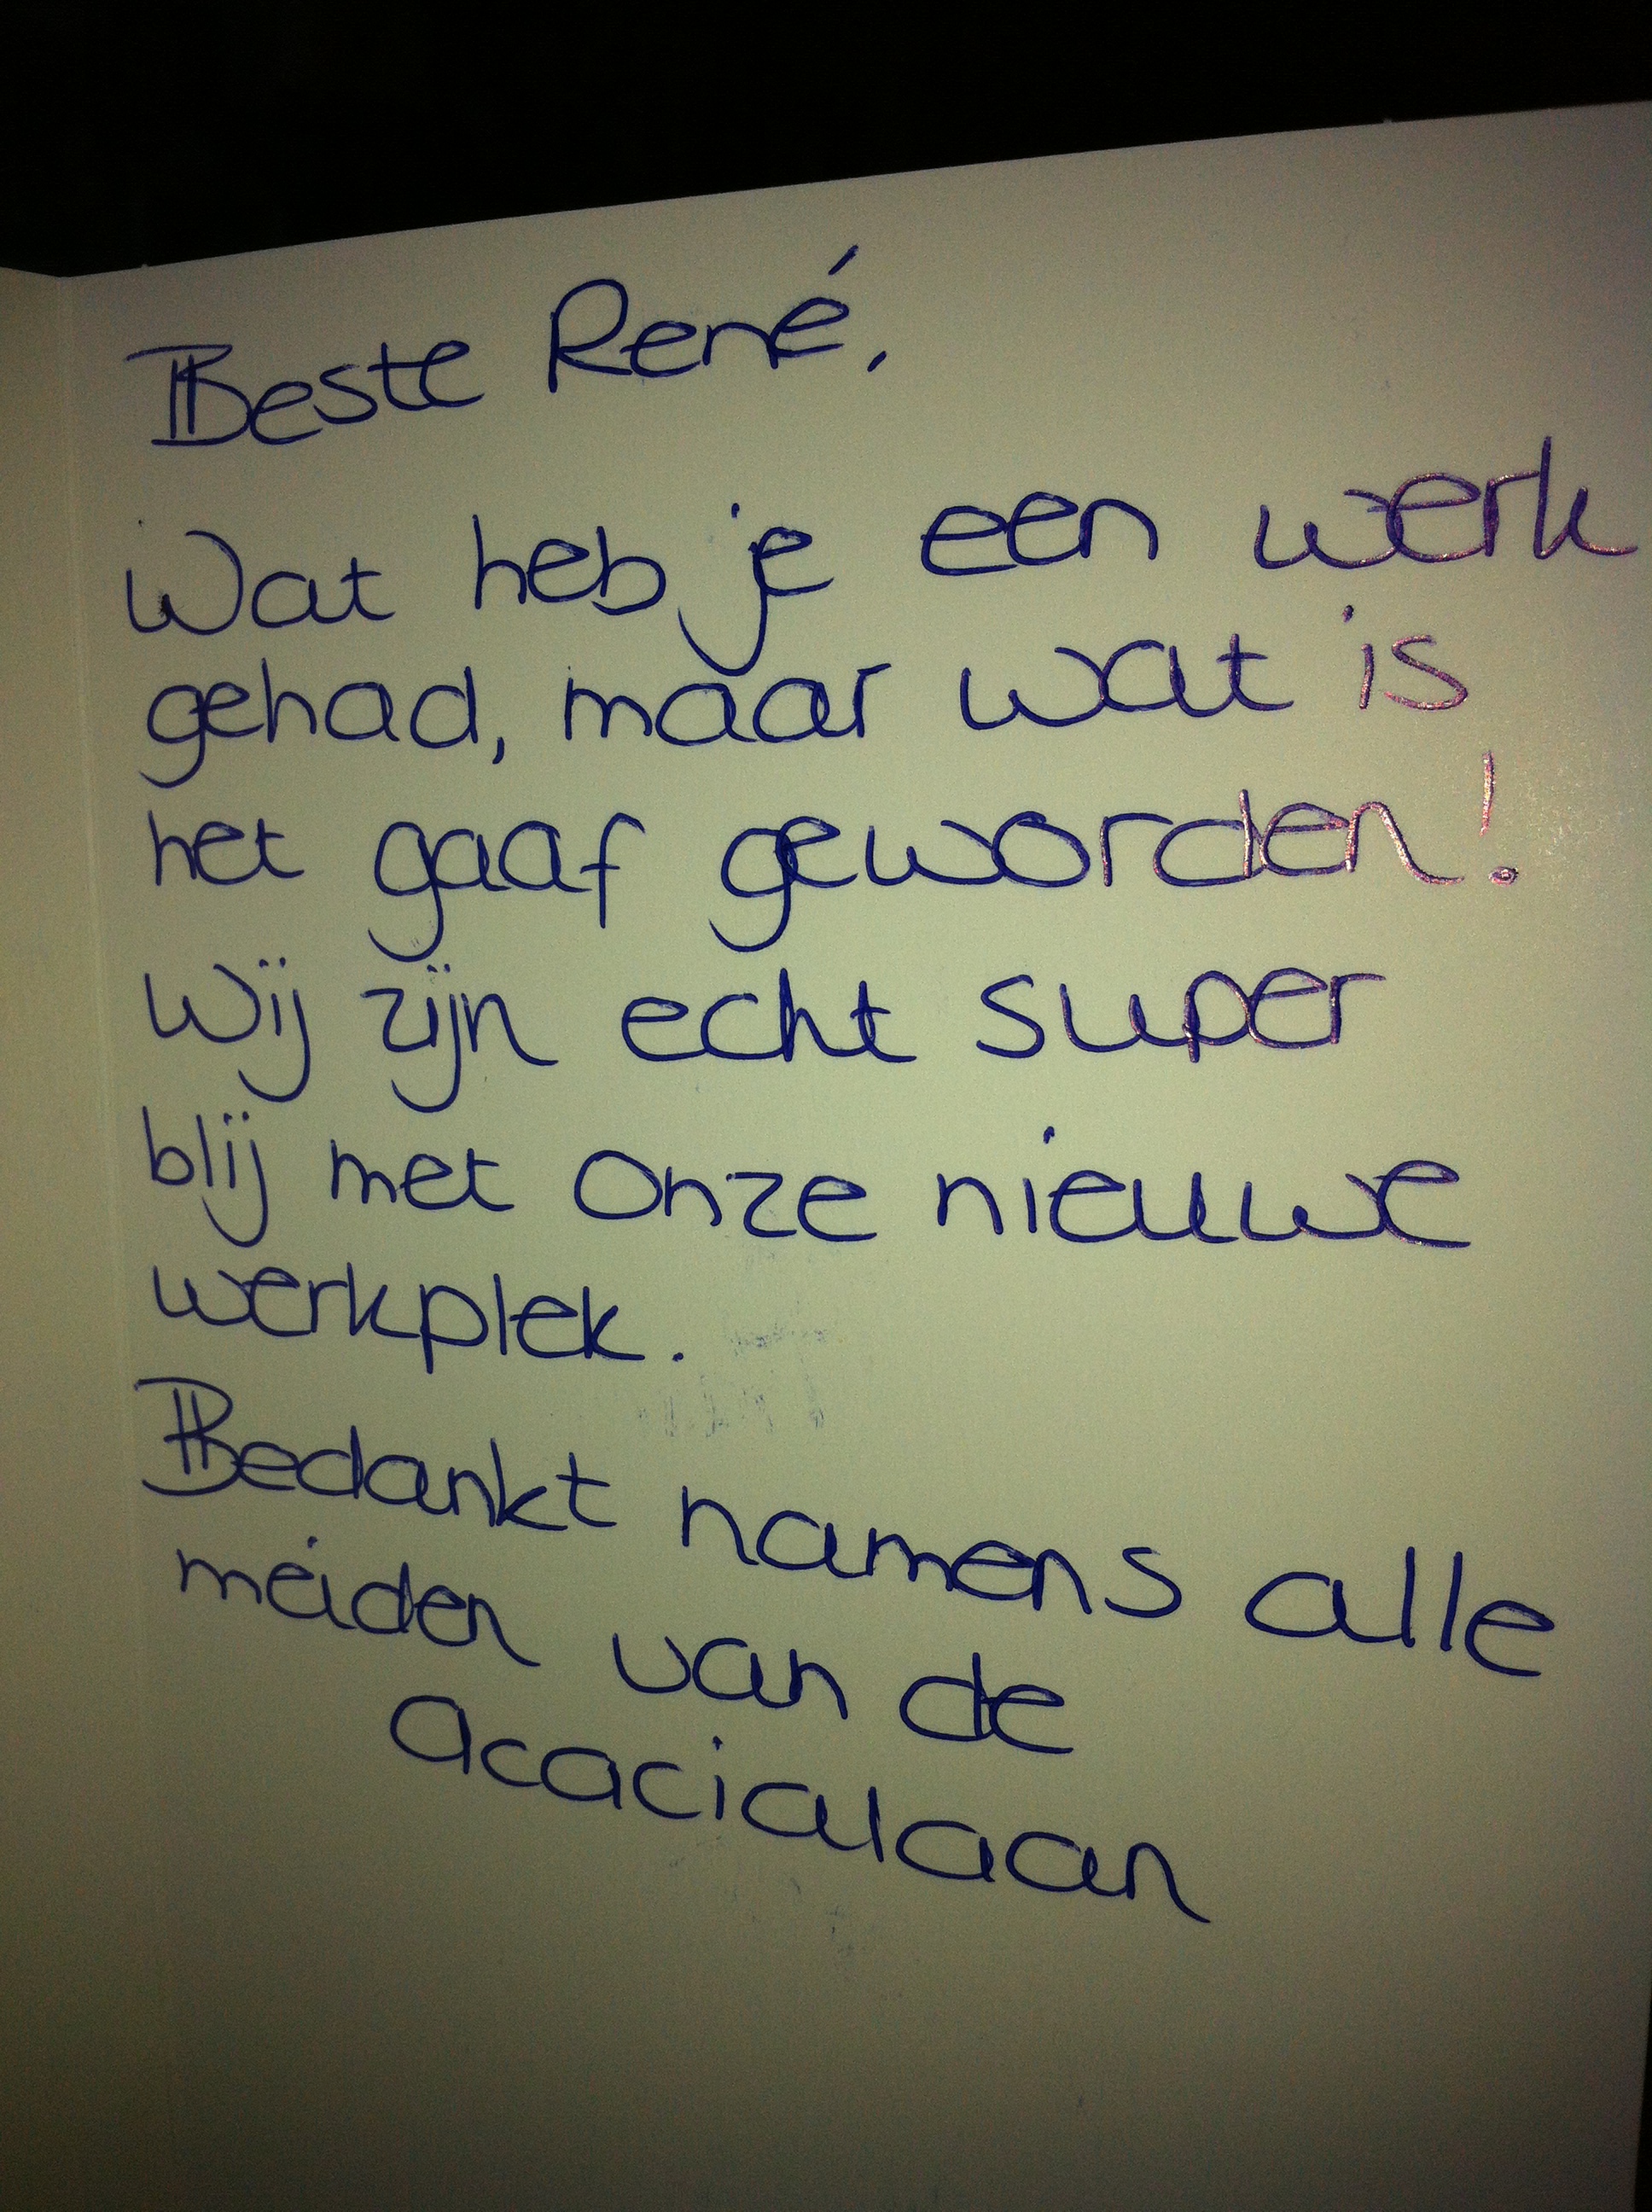 Beste René,
Wat heb je een werk
gehad, maar wat is
het gaaf geworden!
Wij zijn echt super
blij met onze nieuwe
werkplek.
Bedankt namens alle
meiden van de
acacialaan